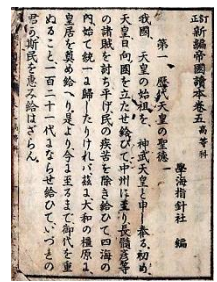 訂正 新編帝國讀本卷五 高等科
學海指針社 編
第一 歷代天皇の聖德一
我國 天皇の始祖を 神武天皇と申し奉る初め
天皇日向國を立たせ給ひて中州に至り長髓彦等
の諸賊を討ち平げ民の疾苦を除き給ひて四海の
內始て統一に歸したりければ茲に大和の橿原に
皇居を奠め給へり是より今に至るまで御代を重
ぬること一百二十一代にならせ給ひていづれの
君か斯民を惠み給はざらん